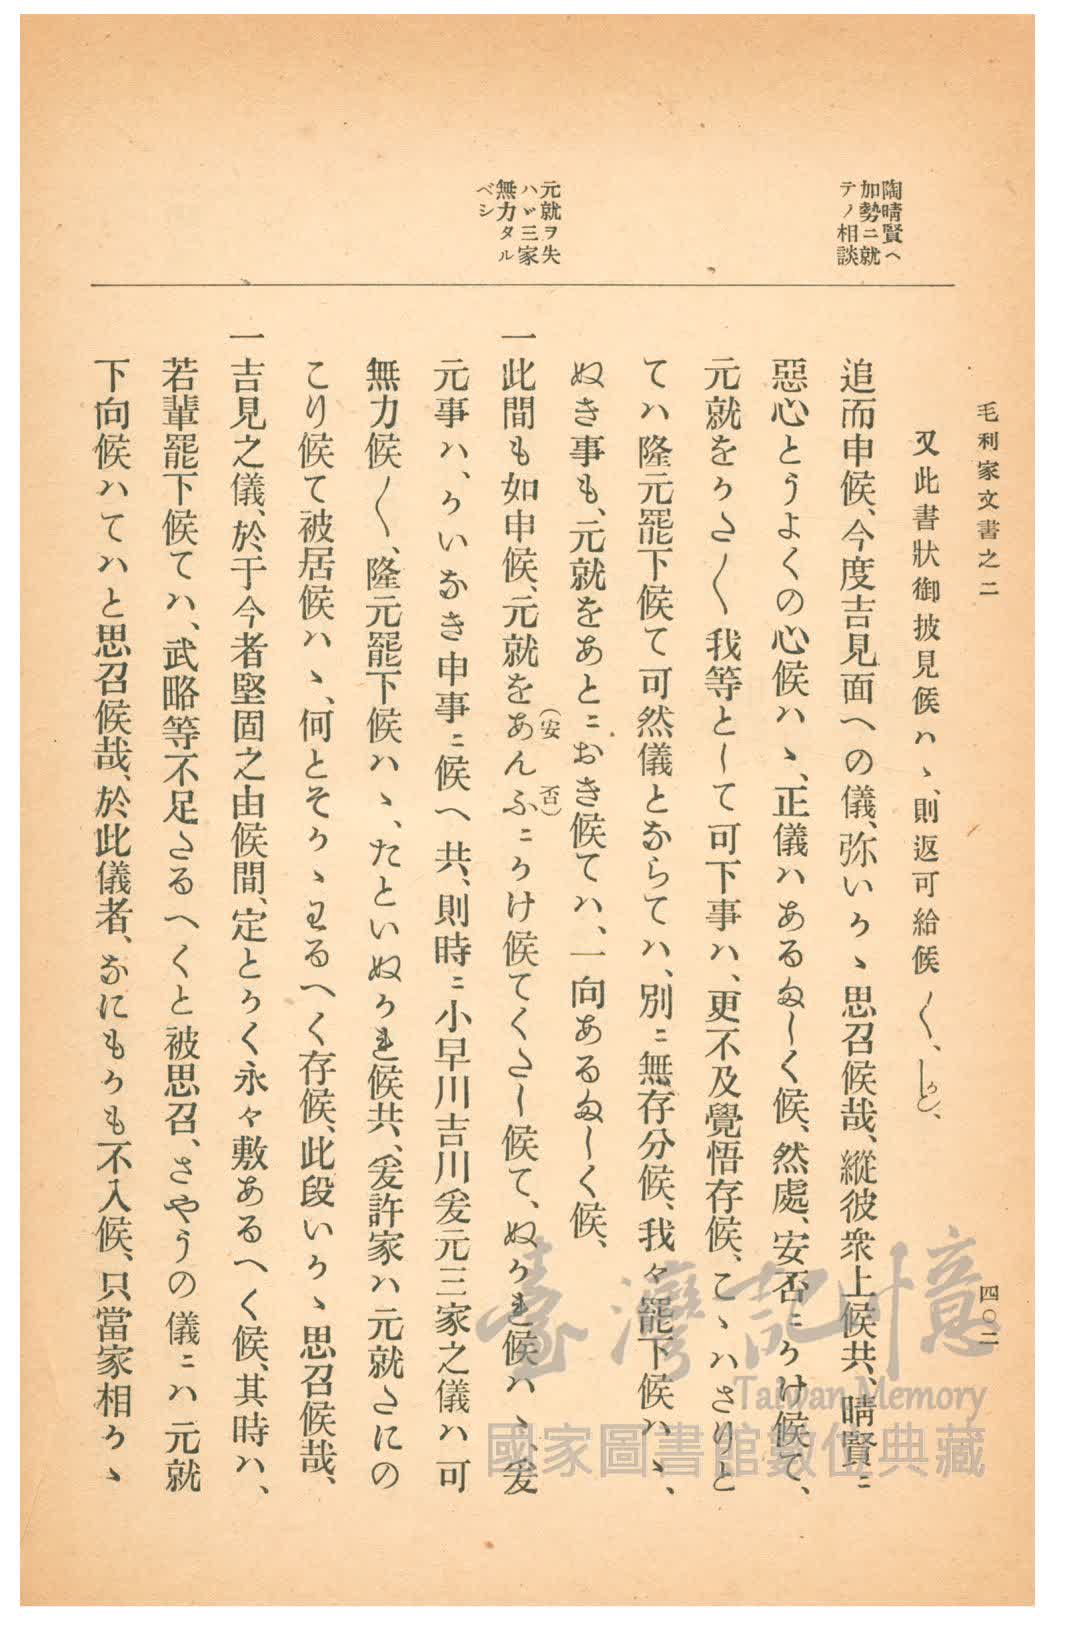 毛利家文書之二
四〇二
陶晴賢ヘ
加勢ニ就
テノ相談
元就ヲ失
ハヾ三家
無力タル
ベシ
又此書狀御披見候ハヽ、則返可給候〱、かしく、
追而申候、今度吉見面への儀、弥いかゝ思召候哉、縱彼衆上候共、晴賢ニ
惡心とうよくの心候ハヽ、正儀ハあるましく候、然處、安否ニかけ候て、
元就をかた〱我等として可下事ハ、更不及覺悟存候、こゝハさりと
てハ隆元罷下候て可然儀とならてハ、別ニ無存分候、我々罷下候ハヽ、
ぬき事も、元就をあとニおき候てハ、一向あるましく候、
一此間も如申候、元就をあんふ(安否)ニかけ候てくたし候て、ぬかれ候ハヽ、爰
元事ハ、かいなき申事ニ候へ共、則時ニ小早川吉川爰元三家之儀ハ可
無力候〱、隆元罷下候ハヽ、たといぬかれ候共、爰許家ハ元就たにの
こり候て被居候ハヽ、何とそかゝわるへく存候、此段いかゝ思召候哉、
一吉見之儀、於于今者堅固之由候間、定とかく永々敷あるへく候、其時ハ、
若輩罷下候てハ、武略等不足たるへくと被思召、さやうの儀ニハ元就
下向候ハてハと思召候哉、於此儀者、なにもかも不入候、只當家相かゝ
臺灣記憶
Taiwan Memory
國家圖書館數位典藏